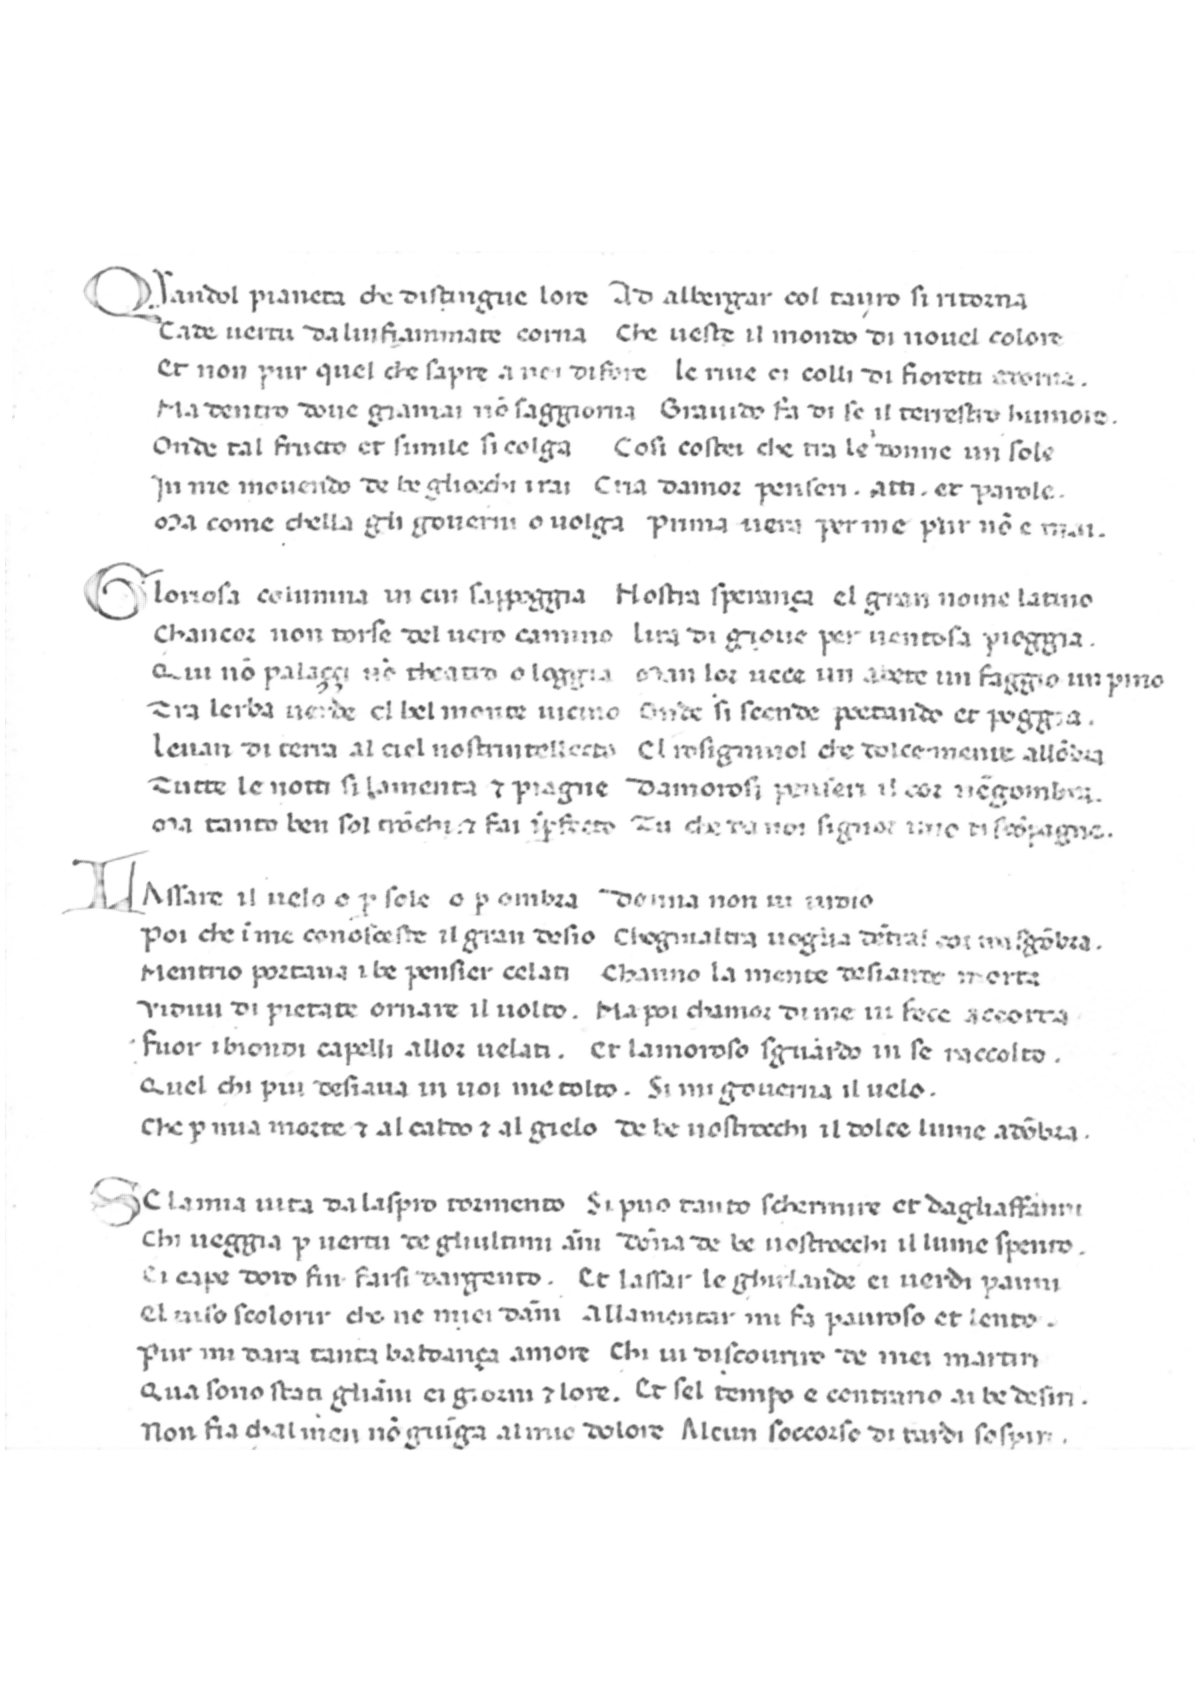 Quandol pianeta che distingue lore Ad albergar col tauro si ritorna
Cade uertu dalinfiammate corna Che ueste il mondo di nouel colore
Et non pur quel che sapre a noi difore le riue ei colli di fioretti adorna.
Ma dentro doue giamai nō saggiorna Grauido fa di se il terrestro humore.
Onde tal fructo et simile si colga Cosi costei che tra le donne un sole
In me mouendo de be gliocchi irai Cria damor penseri. atti. et parole.
Ma come chella gli gouerni o uolga prima uera per me pur nō e mai.
Gloriosa columna in cui sappoggia Nostra sperança el gran nome latino
Chancor non torse del uero camino lira di gioue per uentosa pioggia.
Qui nō palaççi nō theatro o loggia Man lor uece un abete un faggio un pino
Tra lerba uerde el bel monte uicino Onde si scende poetando et poggia.
leuan di terra al ciel nostrintellecto El rosigniuol che dolcemente allōbra
Tutte le notti si lamenta ⁊ piagne Damorosi penseri il cor nēgombra.
Ma tanto ben sol trōchi ⁊ fai īp̄fecto Tu che da noi signor mio ti scōpagne.
LAssare il uelo o ꝑ sole o ꝑ ombra Donna non ui uidio
Poi che ī me conosceste il gran desio Chognialtra uoglia dētral cor mi sgōbra.
Mentrio portaua i be pensier celati Channo la mente desiando morta
Vidiui di pietate ornare il uolto. Ma poi chamor di me ui fece accorta
fuor i biondi capelli allor uelati. Et lamoroso sguardo in se raccolto.
Quel chi piu desiaua in uoi me tolto. Si mi gouerna il uelo.
Che ꝑ mia morte ⁊ al caldo ⁊ al gielo De be uostrocchi il dolce lume adōbra.
SE lamia uita da laspro tormento Si puo tanto schermire et dagliaffanni
Chi ueggia ꝑ uertu de gliultimi āni dōna de be uostrocchi il lume spento.
Ei cape doro fin farsi dargento. Et lassar le ghirlande ei uerdi panni
El uiso scolorir che ne miei dāni Allamentar mi fa pauroso et lento.
Pur mi dara tanta baldança amore Chi ui discouriro de mei martiri
Qua sono stati gliāni ei giorni ⁊ lore. Et sel tempo e contrario ai be desiri.
Non fia chalmen nō giūga al mio dolore Alcun soccorso di tardi sospiri.